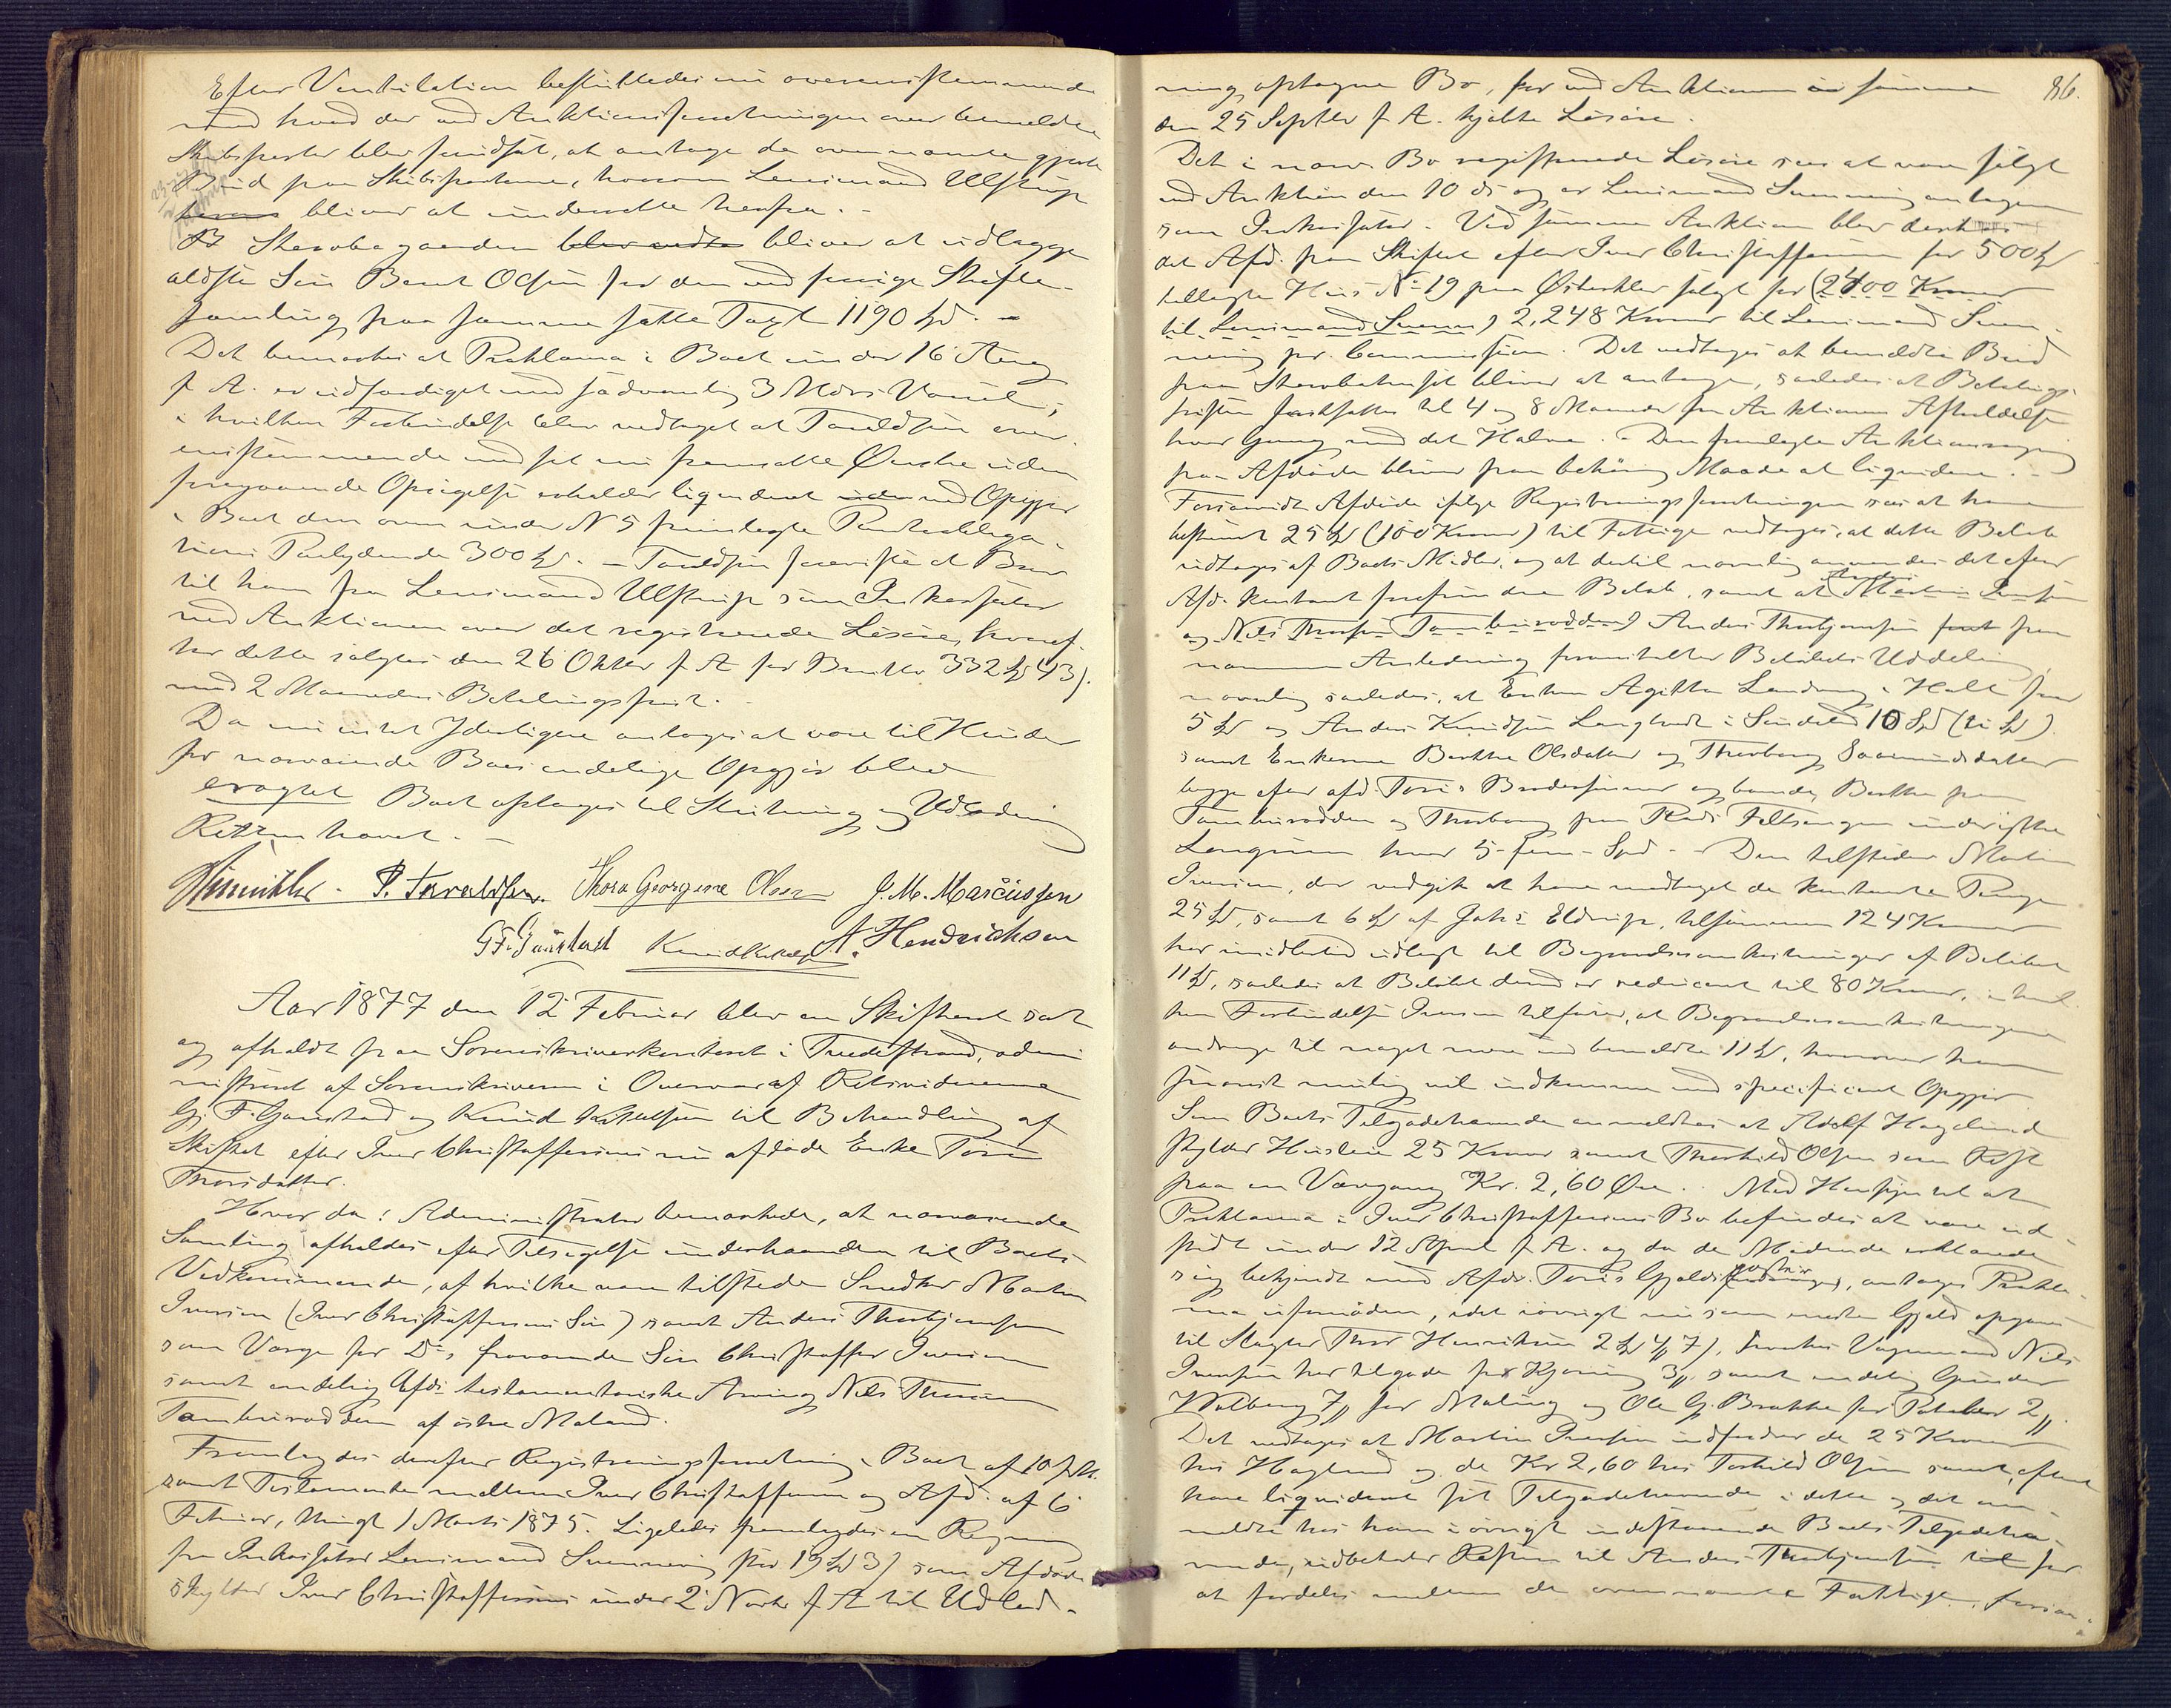 Efter Ventilation besluttedes nu overensstemmende
med hvad der ved Auktionsforretningen over bemeldte
Skibsparter blev forudsat, at antage de ovennævnte gjorte
Bud paa Skibsparterne, hvorom Lensmand Ulstrup
bliver at underrette herfra. –
Stervbogaarden blev vedta bliver at udlægge
ældste Søn Bernt Olsen for den ved forrige Skifte-
samling paa samme satte Taxt 1190 Spd. –
Det bemærkes at Proklama i Boet under 16 Aug
f. A. er udfærdiget med sædvanlig 3 Mdrs Varsel;
i hvilken Forbindelse blev vedtaget at Taraldsen over-
ensstemmende med sit nu fremsatte Ønske uden
foregaaende Opsigelse erholder liqvideret ved Opgjør
i Boet den oven under N 5 fremlagte Panteobliga-
tions Paalydende 300 Spd. – Taraldsen foreviste et Brev
til ham fra Lensmand Ulstrup som Inkassator
ved Auktionen over det registrerede Løsøre, hvoref-
ter dette solgtes den 26 Oktbr f. A. for Brutto 332 Spd 43 s.
med 2 Maaneders Betalingsfrist.
Da nu intet Yderligere antages at være til Hinder
for nærværende Boes endelige Opgjør blev
eragtet Boet optages til Slutning og Udlodning
Retten hævet. –
P. Taraldsen. Thora Georgine Olsen J. M. Marcussen
G. F. Gaustad Knud A. Hendrichsen
Aar 1877 den 12 Februar blev en Skifteret sat
og afholdt paa Sorenskriverkontoret i Tvedestrand, admi-
nistreret af Sorenskriveren i Overvær af Retsvidnerne
G. F. Gaustad og Knud til Behandling af
Skiftet efter Iver Christoffersens nu afdøde Enke Torø
Thorsdatter.
Hvor da: Administrator bemærkede, at nærværende
Samling afholdes efter Tilsigelse underhaanden til Boets
Vedkommende, af hvilke vare tilstede Snedker Martin
Iversen (Iver Christoffersens Søn) samt Anders Thorbjørnsen
som Værge for D's fraværende Søn Christoffer Iversen
samt endelig Afds testamentariske Arving Nils Thorsen
Tambursodden af østre Moland.
Fremlagdes derefter Registreringsforretning i Boet af 10 f. M.
samt Testamente mellem Iver Christoffersen og Afd. af 6
Februar, thingl 1 Marts 1875. Ligeledes fremlagdes en Regning
fra Inkassator Lensmand Svenning stor 19 Spd 3 s som Afdøde
skylder Iver Christoffersens under 2 Novbr f. A. til Udlod-
86.
ning optagne Bo, for ved Auktionen i samme
den 25 Septbr f. A. kjøbte Løsøre.
Det i nærv. Bo registrerede Løsøre sees at være solgt
ved Auktion den 10 ds og er Lensmand Svenning antagen
som Inkassator. Ved samme Auktion blev derhos
det Afd. paa Skiftet efter Iver Christoffersen for 500 Spd
udlagte Huus No 19 paa Østerkleiv solgt for (2400 Kroner
til Lensmand Svenn) 2,248 Kroner til Lensmand Sven-
ning pr. Commission. Det vedtages at bemeldte Bud
paa Stervbohuset bliver at antage, saaledes at Betalings-
fristen fastsættes til 4 og 8 Maaneder fra Auktionens Afholdelse
hver Gang med det Halve. – Den fremlagte Auktionsregning
paa Afdøde bliver paa behørig Maade at liqvidere. –
Forsaavidt Afdøde ifølge Registreringsforretningen sees at have
bestemt 25 Spd (100 Kroner) til Fattige vedtages, at dette Beløb
udtages af Boets Midler, og at dertil navnlig anvendes det efter
Afd. kontant forefundne Beløb, samt at Martin Iversen
og Nils Thorsen Tambursodden) Anders Thorbjørnsen paa
Anledning foranstalter Beløbets Uddeling
navnlig saaledes, at Enken Agethe Landvig i Holt faar
5 Spd og Anders Knudsen Langtved i Søndeled 10 Spd (ti Spd)
samt Enkerne Berthe Olsdatter og Thorborg Saamundsdatter
begge efter afd. Torø's Brodersønner og boende, Berthe paa
Tambursodden og Thorborg paa under østre
hver 5 – fem – Spd. – Den tilstede Martin
Iversen, der vedgik at have modtaget de kontante Penge
25 Spd, samt 6 Spd af Jahs Eldrup, tilsammen 124 Kroner
har imidlertid udlagt til Begravelsesomkostninger af Beløbet
11 Spd, saaledes at Beløbet derved er reduceret til 80 Kroner, i hvil-
ken Forbindelse Iversen tilføier, at Begravelsesomkostningerne
andrage til noget mere end bemeldte 11 Spd, hvorover han
snarest muligt vil indkomme med specificeret Opgjør
Som Boets Tilgodehavende anmeldtes at Adolf Haglund
skylder Husleie 25 Kroner samt Thorkild Olsen som Rest
paa en Værgang Kr. 2,60 Øre. Med Hensyn til at
Proklama i Iver Christoffersens Bo befindes at være ud-
stedt under 12 April f. A. og da de Mødende erklærede
sig bekjendt med Afds. Torø's Gjeldsposter, antages Prokla-
ma ufornøden, idet iøvrigt nu som eneste Gjeld opgaves
til Slagter Thor Henriksen 2 Spd 4 # 7 s, hvorhos Vognmand Nils
Iversen har tilgode for Kjøring 3 #, samt endelig Gunder
Walberg 7 # for Maling og Ole G. Brække for Poteter 2 #.
Det vedtages at Martin Iversen indfordrer de 25 Kroner
hos Haglund og de Kr 2,60 hos Torkild Olsen samt, efterat
have liqvideret sit Tilgodehavende i dette og det an-
meldte hos ham iøvrigt indestaaende Boets Tilgodeha-
vende, indbetaler Resten til Anders Thorbjørnsen for
at fordeles mellem de ovennævnte Fattige, forsaa-